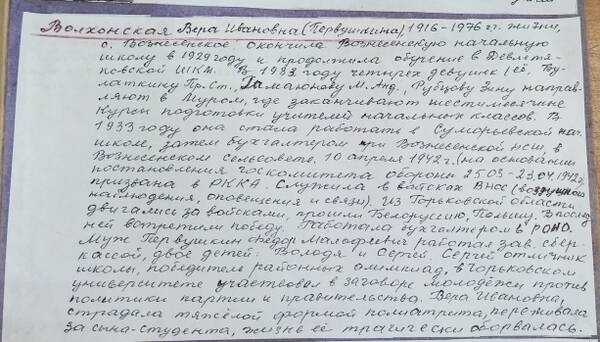 Волхонская Вера Ивановна (Первушкина), 1916-1976 гг. жизни,
с. Вознесенское. Окончила Вознесенскую начальную
школу в 1929 году и продолжила обучение в Девлетя-
ковской ШКМ. В 1933 году четырех девушек (её, Бу-
латкину Пр. Ст., Гамаюнову М. Анд., Рубцову Зину направ-
ляют в Муром, где заканчивают шестимесячные
курсы подготовки учителей начальных классов. В
1933 году она стала работать в Суморьевской нач.
школе, затем бухгалтером при Вознесенской нсш, в
Вознесенском сельсовете. 10 апреля 1942 г. (на основании
постановления госкомитета обороны 25.03-23.04.1942г.)
призвана в РККА. Служила в войсках ВНОС (воздушного
наблюдения, оповещения и связи). Из Горьковской области
двигались за войсками, прошли Белоруссию, Польшу, в
ней встретили победу. Работала бухгалтером в РОНО.
Муж Первушкин Фёдор Малафеевич работал зав. сбер-
кассой, двое детей: Володя и Сергей. Сергей отличник
школы, победитель районных олимпиад, в горьковском
университете участвовал в заговоре молодежи против
политики партии и правительства. Вера Ивановна,
страдала тяжёлой формой полиатрита, переживала
за сына-студента, жизнь её трагически оборвалась.